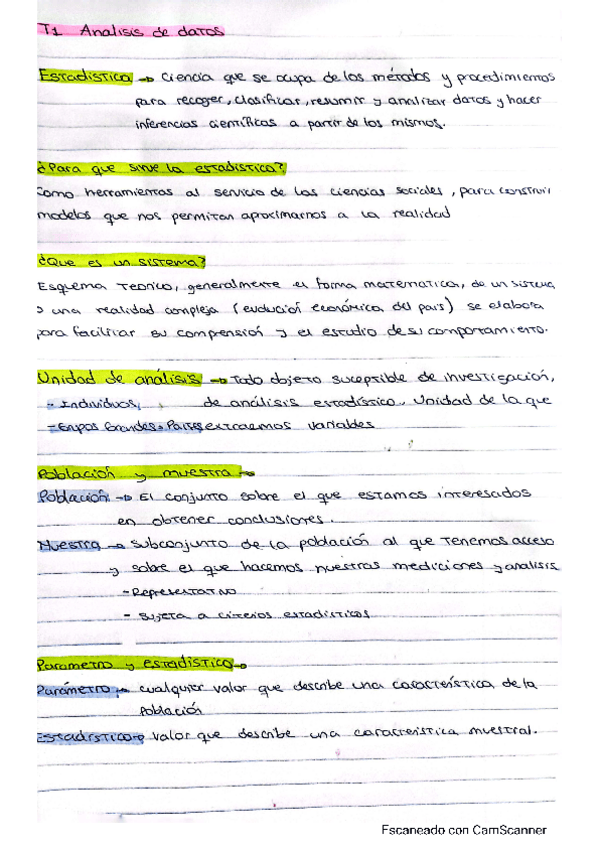 T1 Analisis de datos
Estadistica → Ciencia que se ocupa de los métodos y procedimientos
para recoger, clasificar, resumir y analizar datos y hacer
inferencias científicas a partir de los mismos.
¿Para que sirve la estadistica?
Como herramientas al servicio de las ciencias sociales, para construir
modelos que nos permitan aproximarnos a la realidad
¿Que es un sistema?
Esquema Teorico, generalmente en forma matematica, de un sistema
o una realidad compleja (evolución económica del pais) se elabora
para facilitar su comprensión y el estudio de su comportamiento.
Unidad de análisis → Todo objeto suceptible de investigación,
- Individuos, de análisis estadístico. Unidad de la que
- Grupos Grandes → Paises extraemos variables
Población y muestra →
Población → El conjunto sobre el que estamos interesados
en obtener conclusiones.
Muestra → Subconjunto de la población al que tenemos acceso
y sobre el que hacemos nuestras mediciones y analisis
- Representativo
- Sujeta a criterios estadísticos
Parametro y estadistico →
Parámetro → cualquier valor que describe una característica de la
Población
Estadístico → valor que describe una característica muestral.
Escaneado con CamScanner